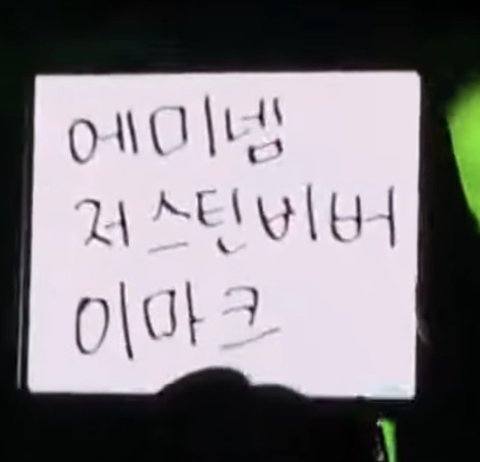 에미넴
저스틴비버
이마크